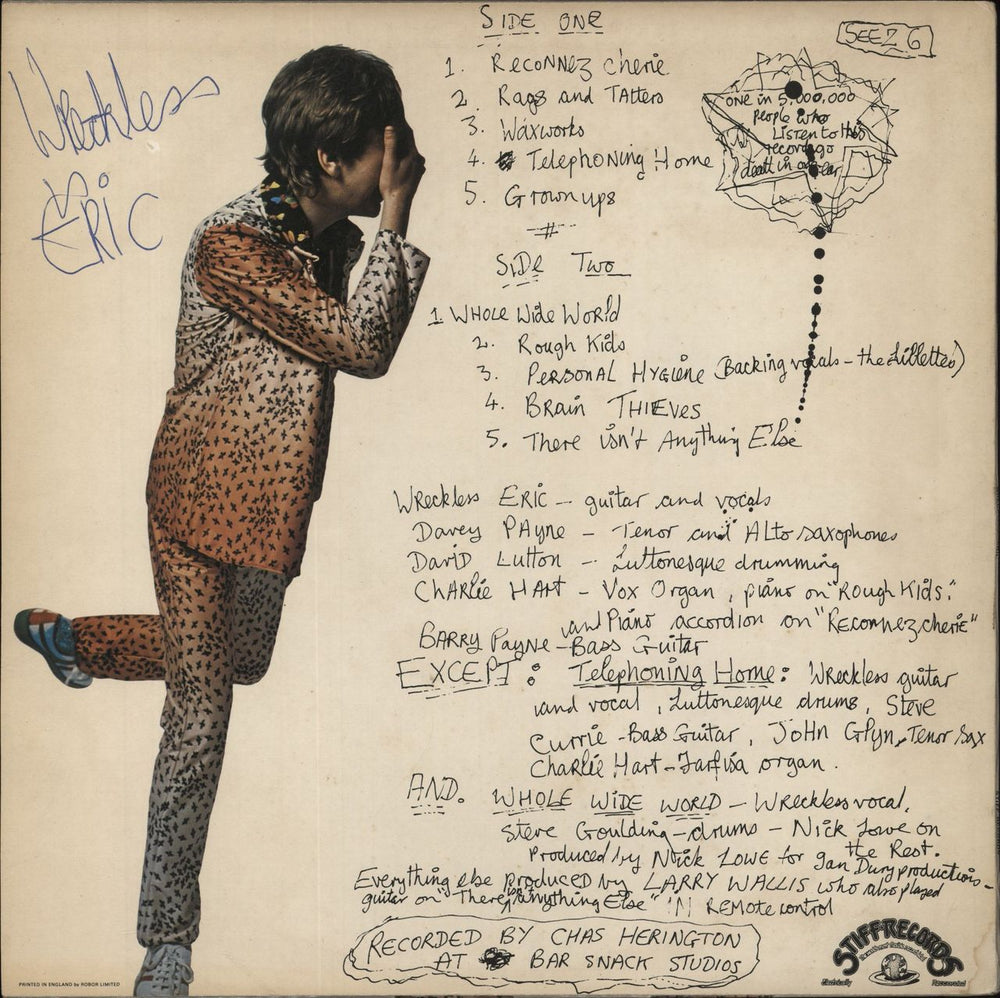 Wreckless
Eric
SIDE ONE
1. Reconnez cherie
2. Rags and Tatters
3. Waxworks
4. Telephoning Home
5. Grown ups
#
SIDE Two
1. WHOLE Wide World
2. Rough Kids
3. PERSONAL HYGIENE (Backing vocals - the Lillettes)
4. BRAIN THIEVES
5. There isn't Anything Else
SEEZ 6
one in 5,000,000
people who
Listen to this
record go
death in one ear
Wreckless ERIC - guitar and vocals
Davey PAyne - Tenor and ALto saxophones
DaviD Lutton - Luttonesque drumming
CHARlie HART - Vox Organ, piano on "Rough Kids".
and Piano accordion on "Reconnez cherie"
BARRY Payne - Bass Guitar
EXCEPT: Telephoning Home: Wreckless guitar
and vocal, Luttonesque drums, Steve
Currie - Bass Guitar, JoHn Glyn, Tenor Sax
Charlie Hart - Farfisa organ.
AND. WHOLE WIDE WORLD - Wreckless vocal,
Steve Goulding - drums - Nick Lowe on
the Rest.
Produced by Nick LOWE for Ian Dury productions -
Everything else PRODUCED by LARRY WALLIS who also played
guitar on "There isn't Anything Else" IN REMote control
RECORDED BY CHAS HERINGTON
AT BAR SNACK STUDIOS
STIFF RECORDS
Electrically
Recorded
PRINTED IN ENGLAND by ROBOR LIMITED